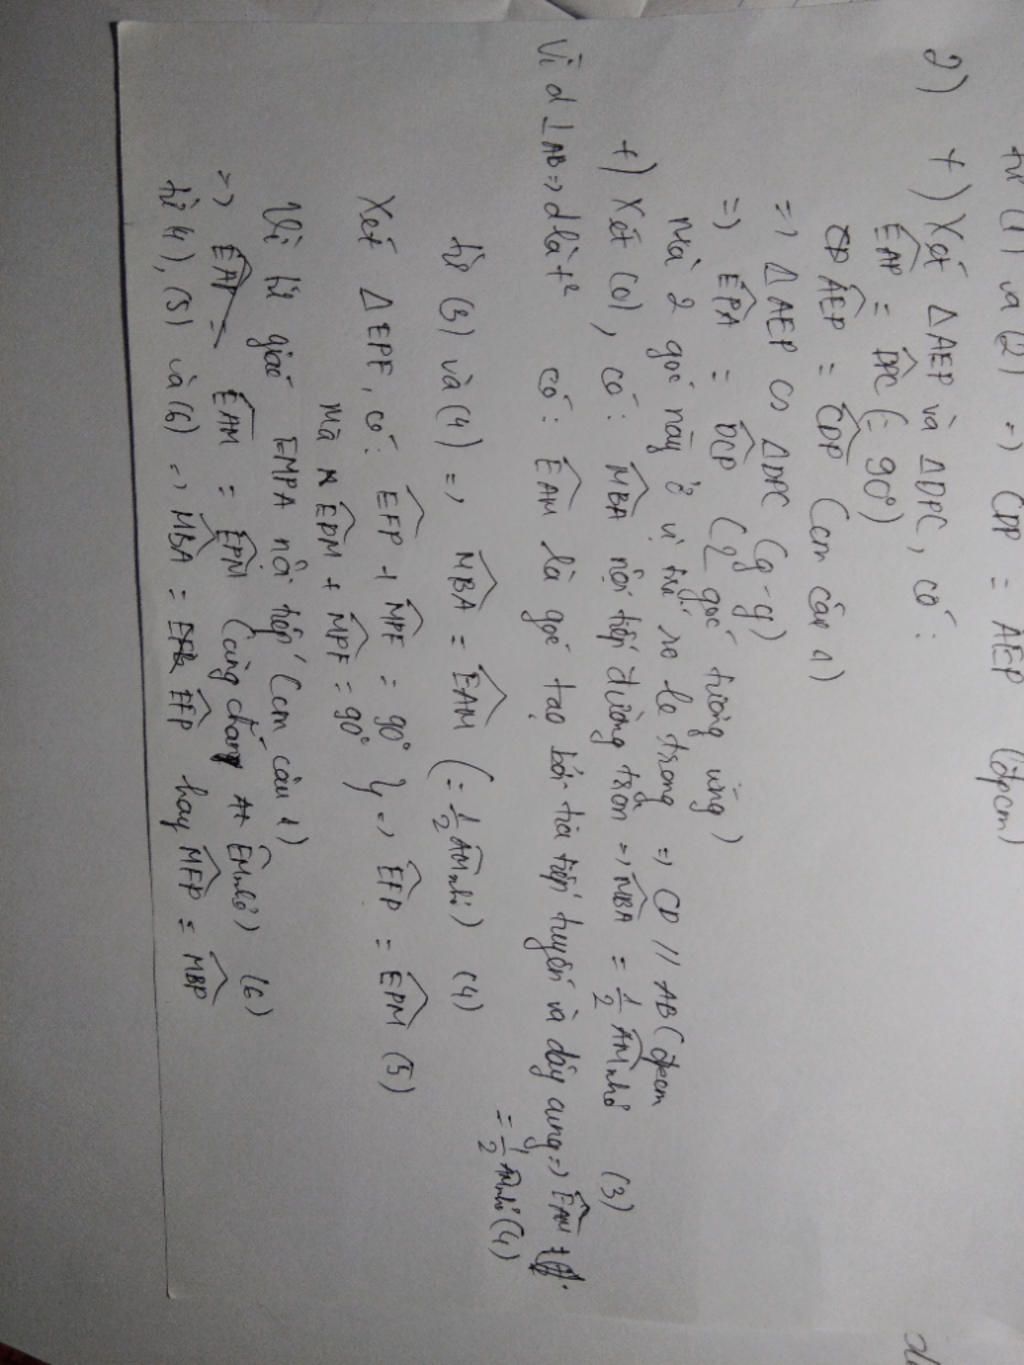 từ (1) và (2) => CDP = AEP (đpcm)
2) +) Xét ΔAEP và ΔDPC, có:
EAP = DPC (= 90°)
AEP = CDP (cm câu 1)
=> ΔAEP ∽ ΔDPC (g-g)
=> EPA = DCP (2 góc tương ứng)
Mà 2 góc này ở vị trí so le trong => CD // AB (đpcm
+) Xét (O), có: MBA nội tiếp đường tròn => MBA = 1/2 AM nhỏ (3)
Vì d ⊥ AB => d là t² có: EAM là góc tạo bởi tia tiếp tuyến và dây cung => EAM
= 1/2 AM nhỏ (4)
từ (3) và (4) => MBA = EAM (= 1/2 AM nhỏ) (4)
Xét ΔEPF, có: EFP + MPF = 90°
Mà EPM + MPF = 90° } => EFP = EPM (5)
Vì tứ giác EMPA nội tiếp (cm câu 1)
=> EAM = EPM (cùng chắn EM nhỏ) (6)
từ 4), (5) và (6) => MBA = EFP hay MFP = MBP